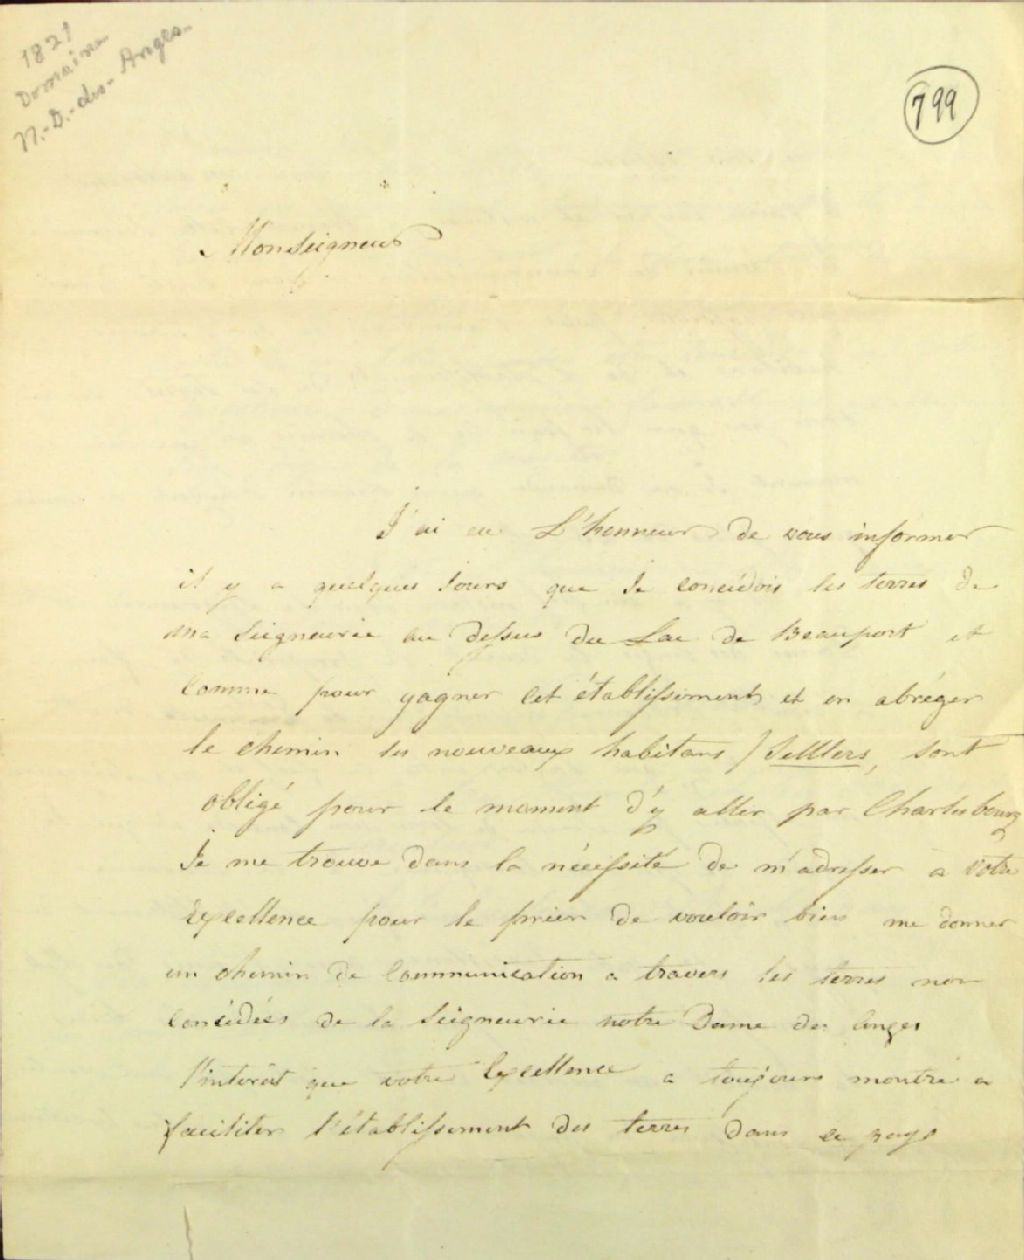 1821
Domaine
N.-D.-des-Anges.
799
Monseigneur
J'ai eu L'honneur de vous informer
il y a quelques Jours que Je concédois les terres de
Ma Seigneurie au dessus du Lac de Beauport et
Comme pour gagner cet établissement et en abréger
le chemin les nouveaux habitans / Settlers, sont
obligé pour le moment d'y aller par Charlesbourg
Je me trouve dans la nécessité de m'adresser a votre
Excellence pour le prier de vouloir bien me donner
un chemin de Communication a travers les terres non
Concédées de la Seigneurie notre Dame des Anges
l'interêt que votre Excellence a toujours montré a
faciliter l'établissement des terres dans ce pays